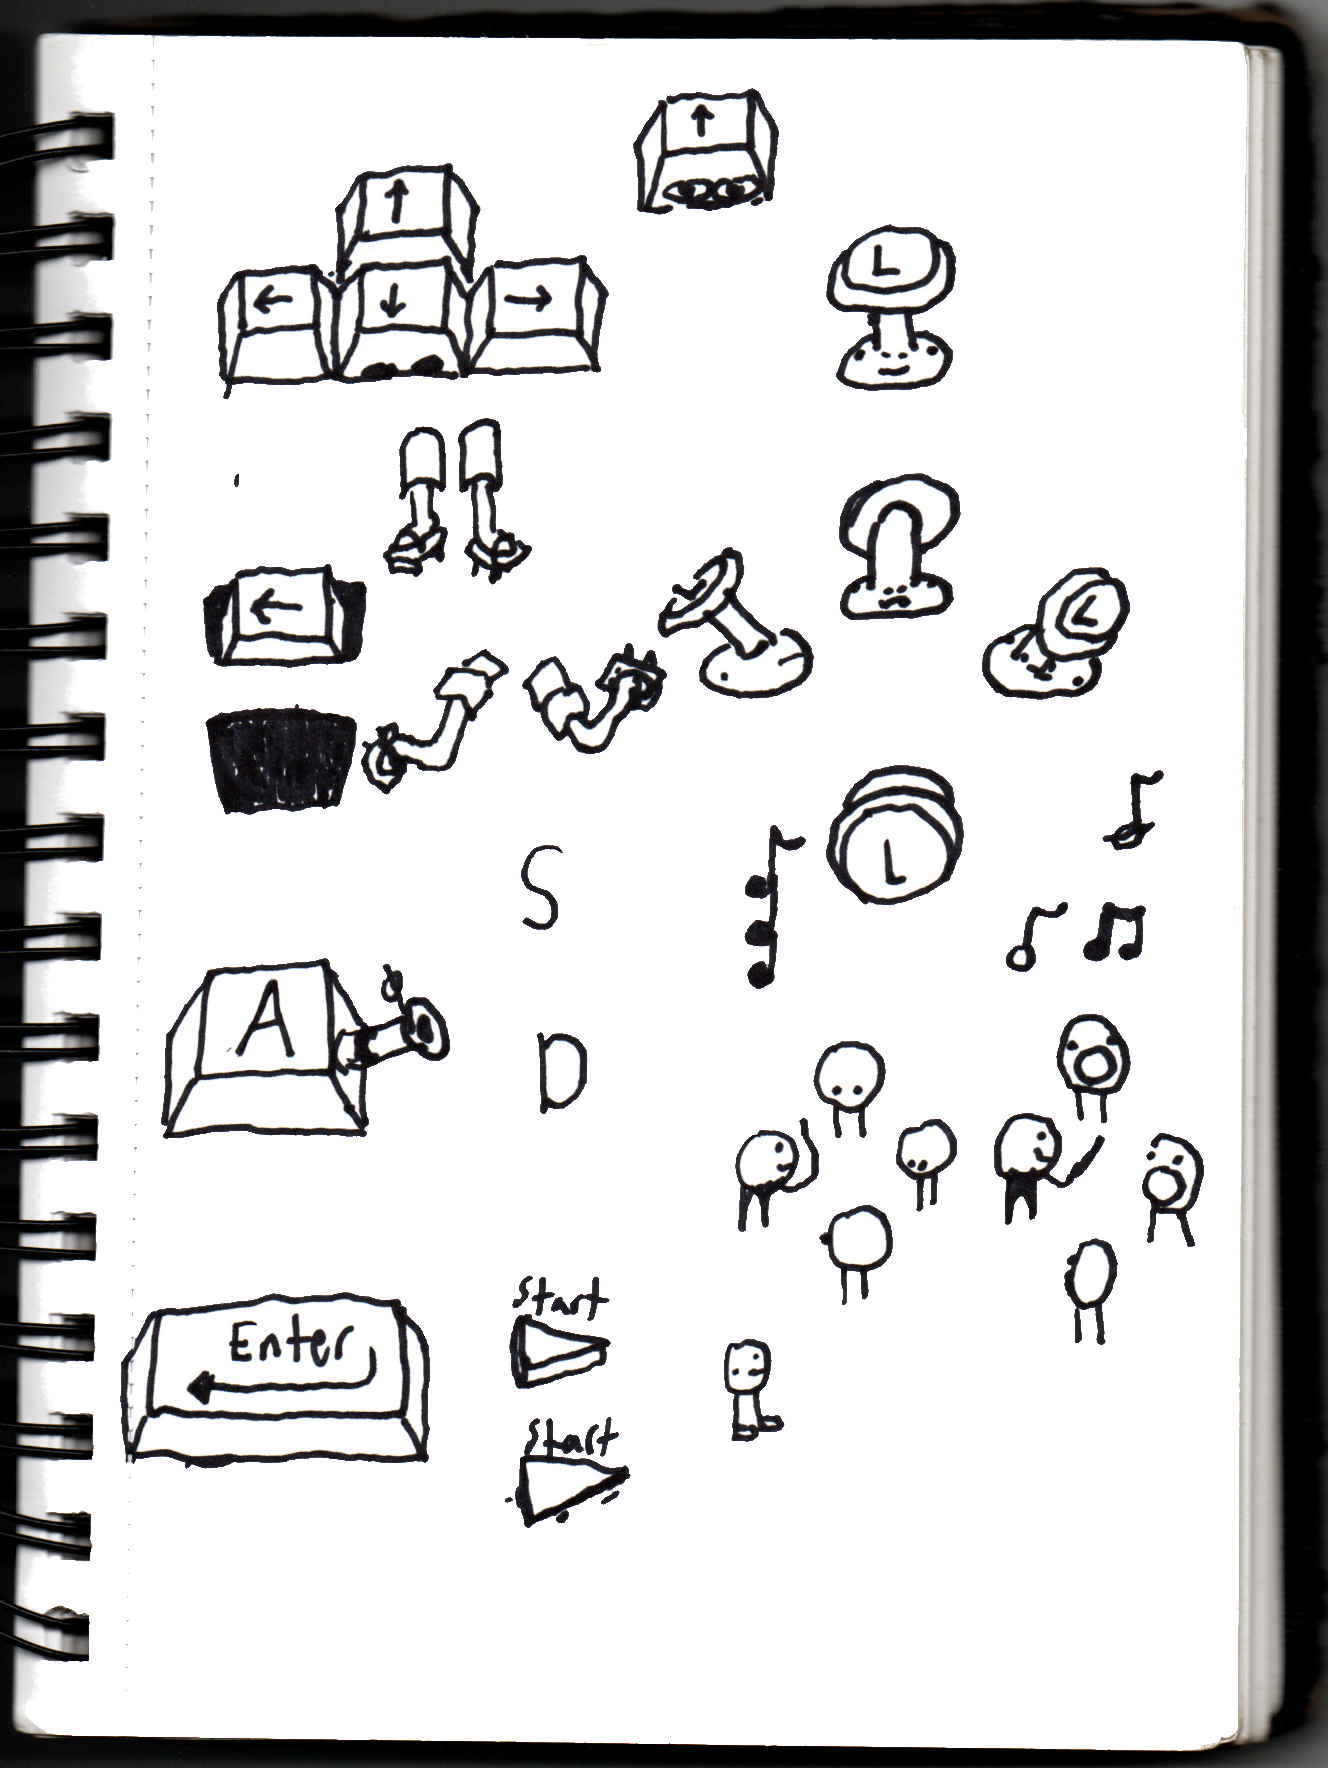 ↑
↑
← ↓ →
L
←
L
L
L
S
A
D
Enter
Start
Start